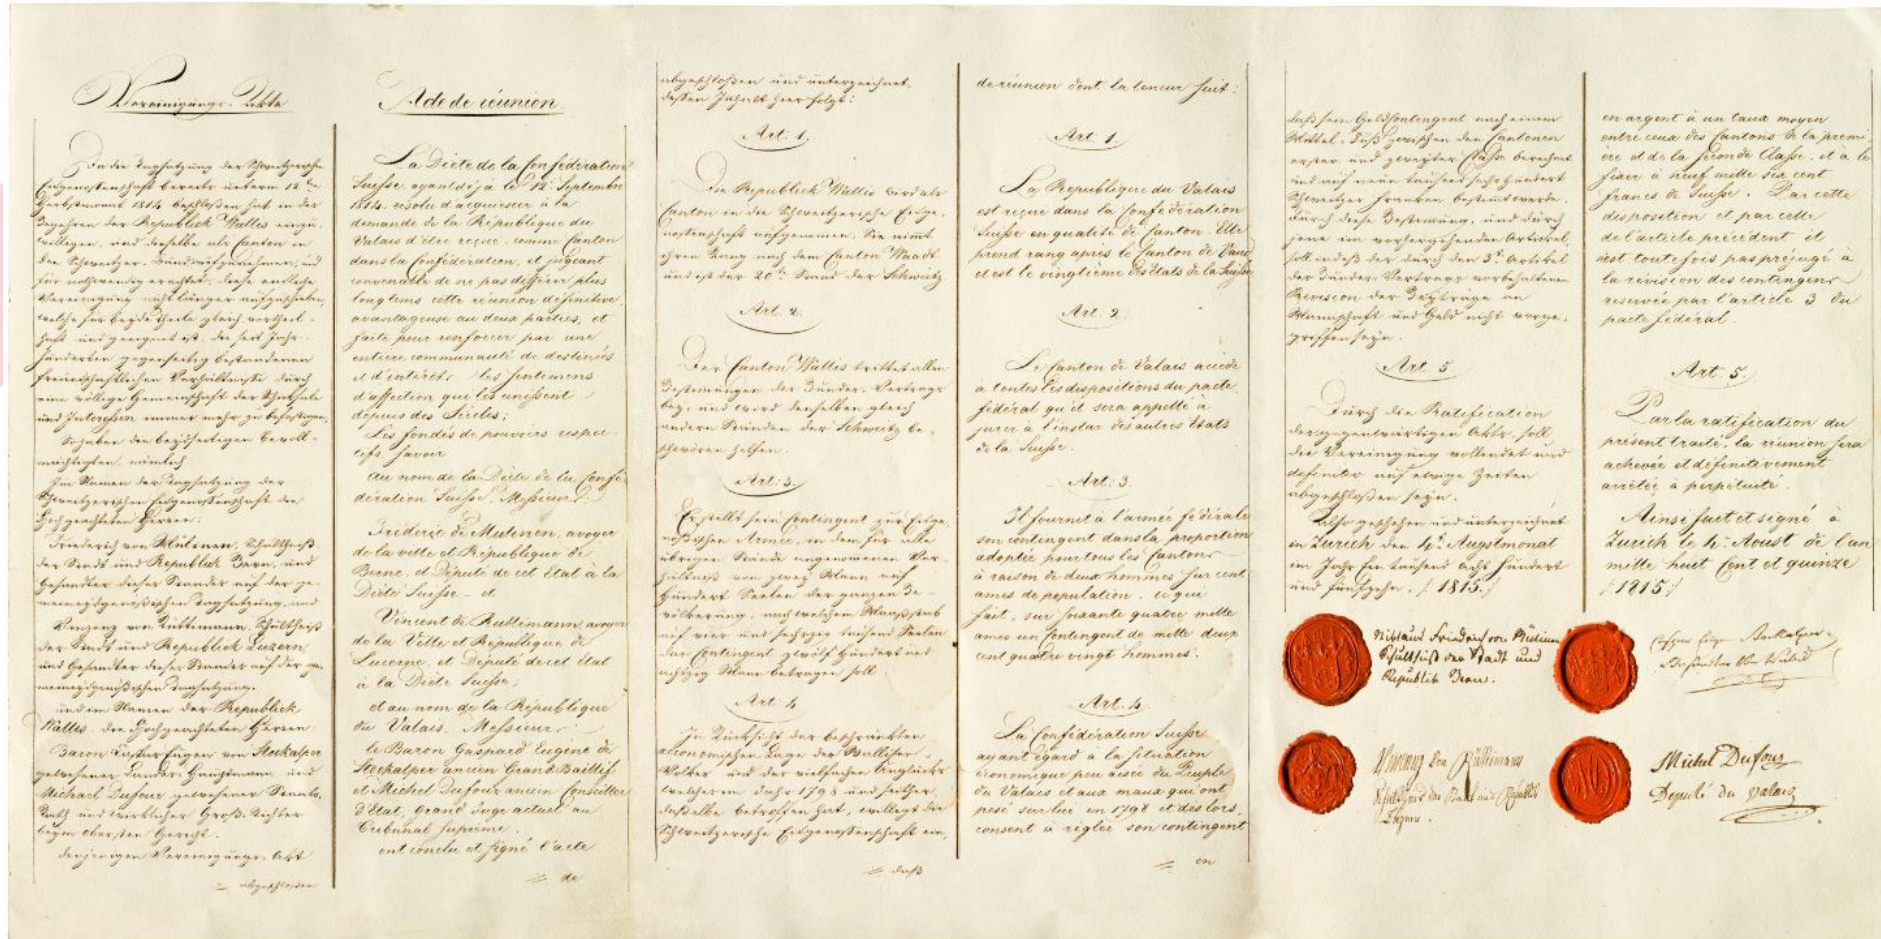 Vereinigungs-Akte
Da die Tagsatzung der Schweitzerische
Eidgenossenschaft bereits unterm 12ten
Herbstmonat 1814 beschlossen hat in das
Begehren der Republick Wallis einzu-
willigen, und dieselbe als Canton in
den Schweitzer-Bund aufzunehmen, und
für nothwendig erachtet, diese endliche
Vereinigung nicht länger aufzuschieben,
welche für beyde Theile gleich vortheil-
haft und geeignet ist, die seit Jahr-
hunderten gegenseitig bestandenen
freundschaftlichen Verhältnisse durch
eine völlige Gemeinschaft der Schicksale
und Interessen immer mehr zu befestigen,
So haben die beydseitigen Bevoll-
mächtigten, nämlich
Im Namen der Tagsatzung der
Schweitzerischen Eidgenossenschaft die
Hochgeachteten Herren:
Friederich von Mülinen, Schultheiß
der Stadt und Republick Bern, und
Gesandter dieses Standes auf der ge-
meineidgenößischen Tagsatzung, und
Vinzenz von Rüttimann, Schultheiß
der Stadt und Republick Luzern,
und Gesandter dieses Standes auf der ge-
meineidgenößischen Tagsatzung.
und im Namen der Republick
Wallis, die Hochgeachteten Herren
Baron Caspar Eugen von Stockalper
gewesener Landes-Hauptmann und
Michael Dufour gewesener Staats-
Rath und wirklicher Groß-Richter
beym obersten Gericht.
denjenigen Vereinigungs-Akt
abgeschlossen
Acte de réunion.
La Diète de la Confédération
Suisse, ayant déjà le 12e Septembre
1814. résolu d'acquiescer à la
demande de la République du
Valais d'être reçue, comme Canton
dans la Confédération, et jugeant
convenable de ne pas différer plus
longtems cette réunion définitive,
avantageuse au deux parties, et
faite pour renforcer par une
entière communauté de destinées
et d'intérêts les sentimens
d'affection qui les unissent
depuis des Siècles;
Les fondés de pouvoirs respec-
tifs savoir
au nom de la Diète de la Confé-
dération Suisse, Messieurs
Fréderic de Mulinen, avoyer
de la ville et République de
Berne, et Député de cet Etat à la
Diète Suisse - et
Vincent de Ruttimann, avoyer
de la Ville et République de
Lucerne, et Député de cet Etat
à la Diète Suisse;
et au nom de la République
du Valais, Messieurs:
le Baron Gaspard Eugène de
Stockalper ancien Grand Baillif
et Michel Dufour ancien Conseiller
d'Etat, Grand Juge actuel au
Tribunal suprème.
ont conclu et signé l'acte
de
abgeschlossen und unterzeichnet
dessen Inhalt hier folgt:
Art: 1.
Die Republick Wallis wird als
Canton in die Schweitzerische Eidge-
nossenschaft aufgenommen. Sie nimmt
ihren Rang nach dem Canton Waadt
und ist der 20te Stand der Schweitz
Art. 2.
Der Canton Wallis trittet allen
Bestimmungen des Bundes-Vertrags
bey, und wird denselben gleich
andern Ständen der Schweitz be-
schwören helfen.
Art: 3.
Er stellt sein Contingent zur Eidge-
nößischen Armee, in dem für alle
übrigen Stände angenommenen Ver-
hältniß von zwey Mann auf
Hundert Seelen der ganzen Be-
völkerung, nach welchem Maaßstab
auf vier und sechzig tausend Seelen
das Contingent zwölf Hundert und
achtzig Mann betragen soll
Art 4
In Rücksicht der beschränkten
economischen Lage des Walliser-
Volkes und der vielfachen Unglücke
welche im Jahr 1798 und seither
dasselbe betroffen hat, williget die
Schweitzerische Eidgenossenschaft ein,
daß
de réunion dont la teneur suit:
Art. 1.
La Republique du Valais
est reçue dans la Confédération
Suisse en qualité de Canton. Elle
prend rang après le Canton de Vaud
et est le vingtième des Etats de la Suisse
Art. 2.
Le Canton de Valais accède
à toutes les dispositions du pacte
fédéral qu'il sera appellé à
jurer à l'instar des autres Etats
de la Suisse.
Art: 3
Il fournit à l'armée fédérale
son contingent dans la proportion
adoptée pour tous les Cantons
à raison de deux hommes sur cent
ames de population. ce qui
fait, sur soixante quatre mille
ames un contingent de mille deux
cent quatre vingt hommes.
Art. 4.
La Confédération Suisse
ayant égard à la situation
économique peu aisée du Peuple
du Valais et aux maux qui ont
pesé sur lui en 1798 et des lors,
consent à régler son contingent
en
daß sein Geldcontingent nach einem
Mittel-Fuß zwischen den Cantonen
erster und zweyter Classe berechnet
und auf neun tausend sechs hundert
Schweitzer Franken bestimmt werde.
Durch diese Bestimmung, und durch
jene im vorhergehenden Artickel,
soll indeß der durch den 3t. Artickel
des Bundes-Vertrags vorbehaltenen
Revision der Beyträge an
Mannschaft und Geld nicht vorge-
griffen seyn.
Art. 5
Durch die Ratification
der gegenwärtigen Akte, soll
die Vereinigung vollendet und
definitiv auf ewige Zeiten
abgeschlossen seyn.
Also geschehen und unterzeichnet
in Zürich den 4t. Augstmonat
im Jahr Ein tausend Acht hundert
und fünfzehn. /: 1815:/
Niklaus Friedrich von Mülinen
Schultheiß der Stadt und
Republik Bern.
Vincenz von Rüttimann
Schultheiss der Stadt und Republik
Luzern.
en argent à un taux moyen
entre ceux des Cantons de la premi-
ère et de la seconde Classe, et à le
fixer à neuf mille six cent
francs de Suisse. Par cette
disposition et par celle
de l'article précédent il
n'est toutefois pas préjugé à
la révision des contingens
reservée par l'article 3 du
pacte fédéral.
Art. 5.
Par la ratification du
présent traité, la réunion sera
achevée et définitivement
arrêtée à perpétuité.
Ainsi fait et signé à
Zurich le 4e. Aoust de l'an
mille huit Cent et quinze
/:1815:/
Stockalper
Michel Dufour
Deputé du Valais